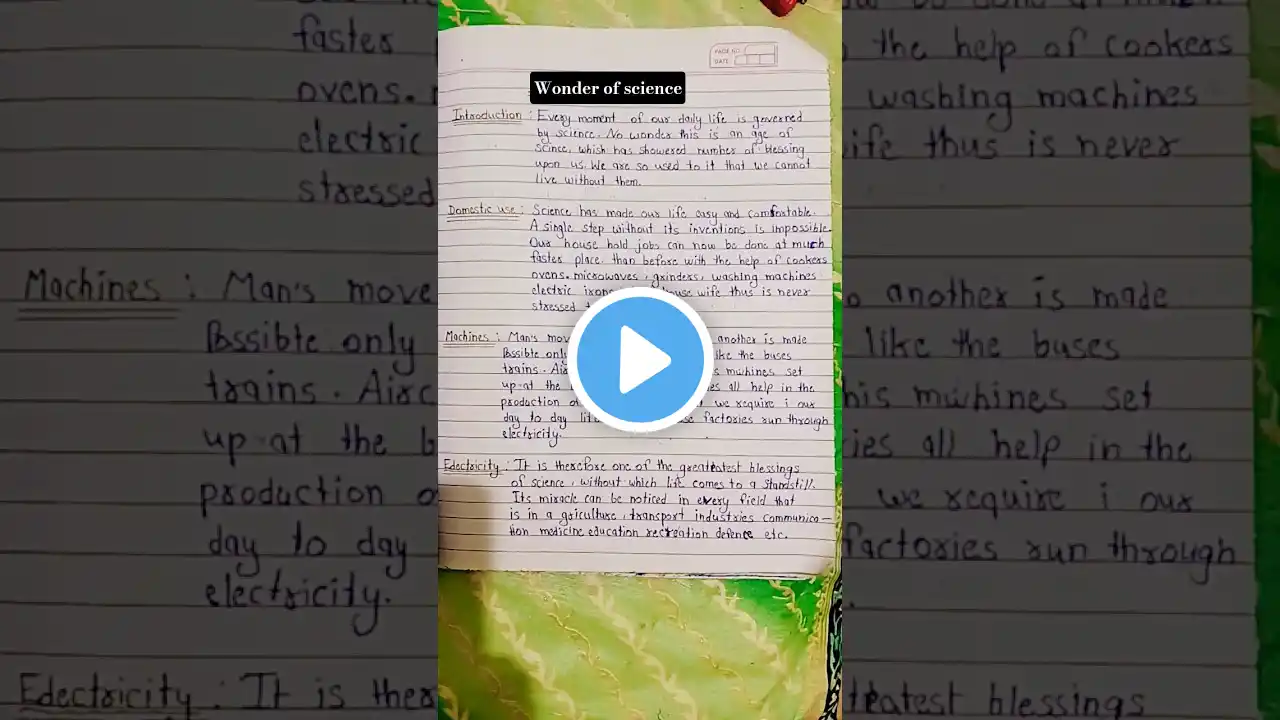 PAGE NO.
DATE
Wonder of science
Introduction : Every moment of our daily life is governed
by science. No wonder this is an age of
scince, which has showered number of blessing
upon us. We are so used to it that we cannot
live without them.
Domestic use : Science has made our life easy and comfostable.
A single step without its inventions is impossible.
Our house hold jobs can now be done at much
faster place. than before with the help of cookers
ovens. microwaves, grinders, washing machines
electric irons wife thus is never
stressed
Machines : Man's another is made
Pssible only like the buses
trains. muhines set
up-at the all help in the
production we require i our
day to day factories run through
electricity.
Edectricity : It is therefore one of the greatetest blessings
of science, without which life comes to a standstill.
Its miracle can be noticed in every field that
is in a griculture, transport industries communica -
tion medicine education recreation defence etc.